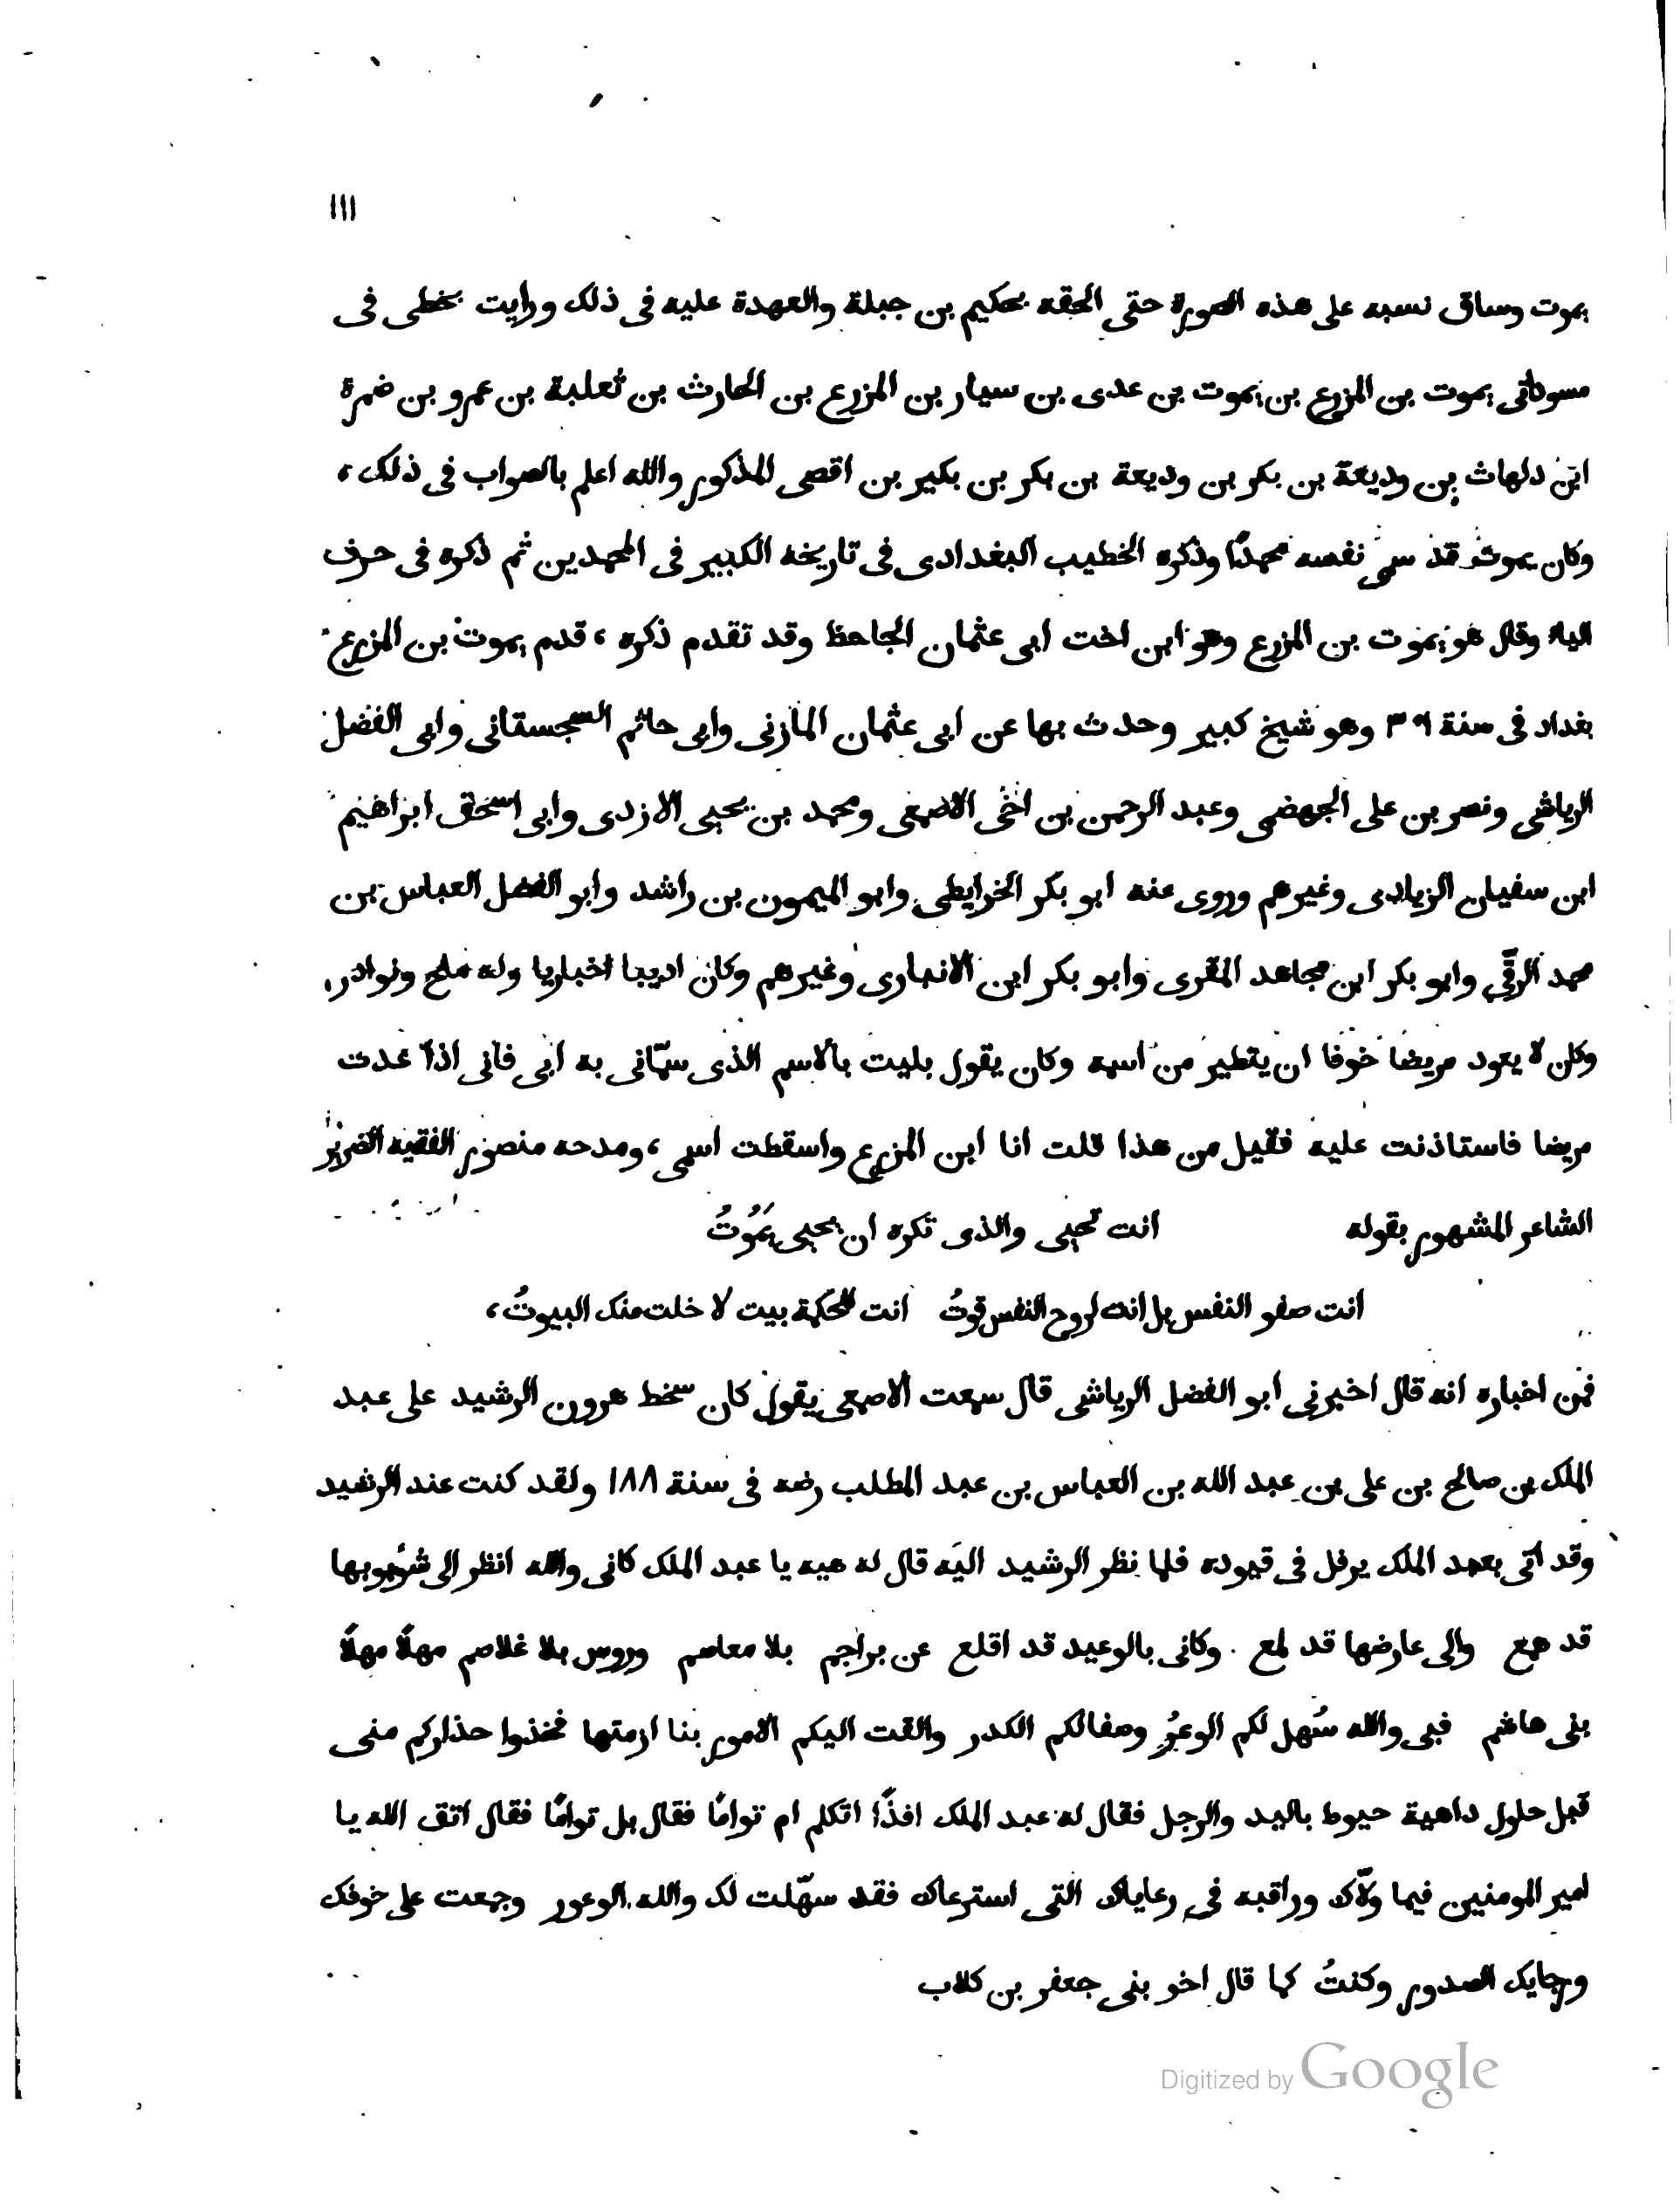 ١١١
يموت وساق نسبه على هذه الصورة حتى الحقه بحكيم بن جبلة والعهدة عليه فى ذلك ورايت بخطى فى
مسوداتى يموت بن المزرع بن يموت بن عدى بن سيار بن المزرع بن الحارث بن ثعلبة بن عمرو بن ضمرة
ابن دلهاث بن وديعة بن بكر بن وديعة بن بكر بن بكير بن اقصى المذكور والله اعلم بالصواب فى ذلك ،
وكان يموت قد سمى نفسه محمدًا وذكره الخطيب البغدادى فى تاريخه الكبير فى المحمدين ثم ذكره فى حرف
الياء وقال هو يموت بن المزرع وهو ابن اخت ابى عثمان الجاحظ وقد تقدم ذكره ، قدم يموت بن المزرع
بغداد فى سنة ٣٠١ وهو شيخ كبير وحدث بها عن ابى عثمان المازنى وابى حاتم السجستانى وابى الفضل
الرياشى ونصر بن على الجهضمى وعبد الرحمن بن اخى الاصمعى ومحمد بن يحيى الازدى وابى اسحق ابراهيم
ابن سفيان الزيادى وغيرهم وروى عنه ابو بكر الخرايطى وابو الميمون بن راشد وابو الفضل العباس بن
محمد الرقّى وابو بكر ابن مجاهد المقرى وابو بكر ابن الانبارى وغيرهم وكان اديبا اخباريا وله ملح ونوادر،
وكان لا يعود مريضا خوفا ان يتطير من اسمه وكان يقول بليت بالاسم الذى سمّانى به ابى فانى اذا عدت
مريضا فاستاذنت عليه فقيل من هذا قلت انا ابن المزرع واسقطت اسمى ، ومدحه منصور الفقيه الضرير
الشاعر المشهور بقوله انت تحيى والذى تكره ان يحيى يَمُوتُ
انت صفو النفس بل انت لروح النفس قوتُ انت للحكمة بيت لا خلت منك البيوتُ ،
فمن اخباره انه قال اخبرنى ابو الفضل الرياشى قال سمعت الاصمعى يقول كان سخط هرون الرشيد على عبد
الملك بن صالح بن على بن عبد الله بن العباس بن عبد المطلب رضه فى سنة ١٨٨ ولقد كنت عند الرشيد
وقد اتى بعبد الملك يرفل فى قيوده فلما نظر الرشيد اليه قال له هيه يا عبد الملك كانى والله انظر الى شؤبوبها
قد همع والى عارضها قد لمع وكانى بالوعيد قد اقلع عن براجم بلا معاصم وروس بلا غلاصم مهلًا مهلًا
بنى هاشم فبى والله سُهل لكم الوعرُ وصفا لكم الكدر والقت اليكم الامور بنا ازمتها فخذوا حذاركم منى
قبل حلول داهية حبوط باليد والرجل فقال له عبد الملك افذًا اتكلم ام توامًا فقال بل توامًا فقال اتق الله يا
امير المومنين فيما ولّاك وراقبه فى رعاياك التى استرعاك فقد سهّلت لك والله الوعور وجمعت على خوفك
ورجايك الصدور وكنتُ كما قال اخو بنى جعفر بن كلاب
Digitized by Google